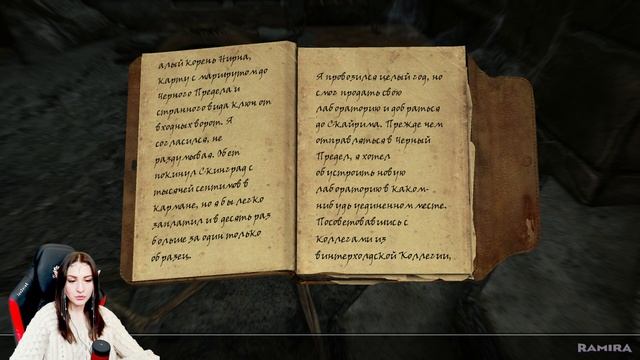 алый корень Нирна,
карту с маршрутом до
Черного Предела и
странного вида ключ от
входных ворот. Я
согласился, не
раздумывая. Обет
покинул Скинград с
тысячей септимов в
кармане, но я бы легко
заплатил и в десять раз
больше за один только
образец.
Я провозился целый год, но
смог продать свою
лабораторию и добраться
до Скайрима. Прежде чем
отправляться в Черный
Предел, я хотел
обустроить новую
лабораторию в каком-
нибудь уединенном месте.
Посоветовавшись с
коллегами из
винтерхолдской Коллегии,
RAMIRA